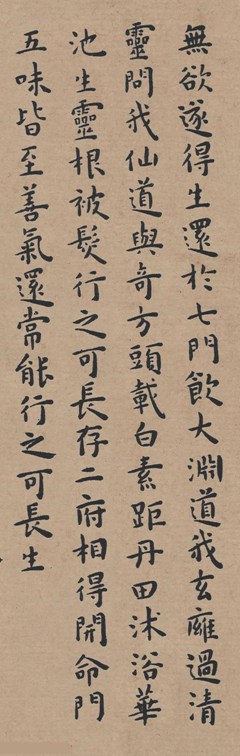 無欲遂得生還於七門飲大淵道我玄廱過清
靈問我仙道與奇方頭載白素距丹田沐浴華
池生靈根被髮行之可長存二府相得開命門
五味皆至善氣還常能行之可長生